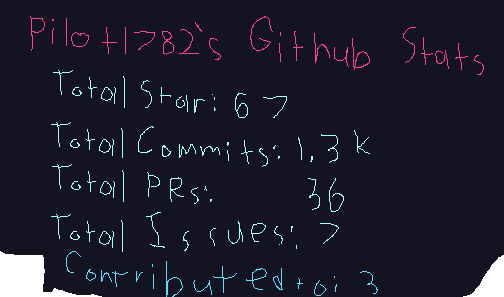 Pilot1782's Github Stats
Total Star: 67
Total Commits: 1,3k
Total PRs: 36
Total Issues: 7
Contributed to: 3